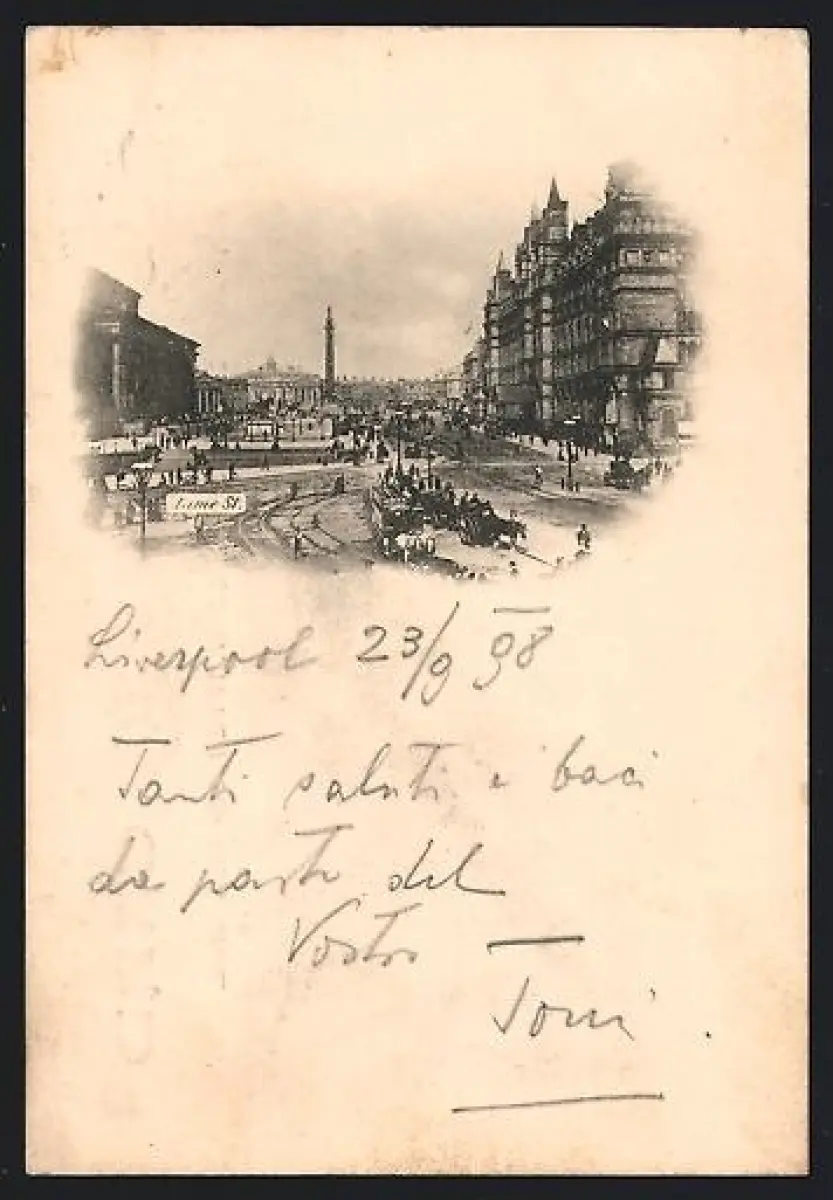 Lime St.
Liverpool 23/9 98
Tanti saluti e baci
da parte del
Vostro
Toni.